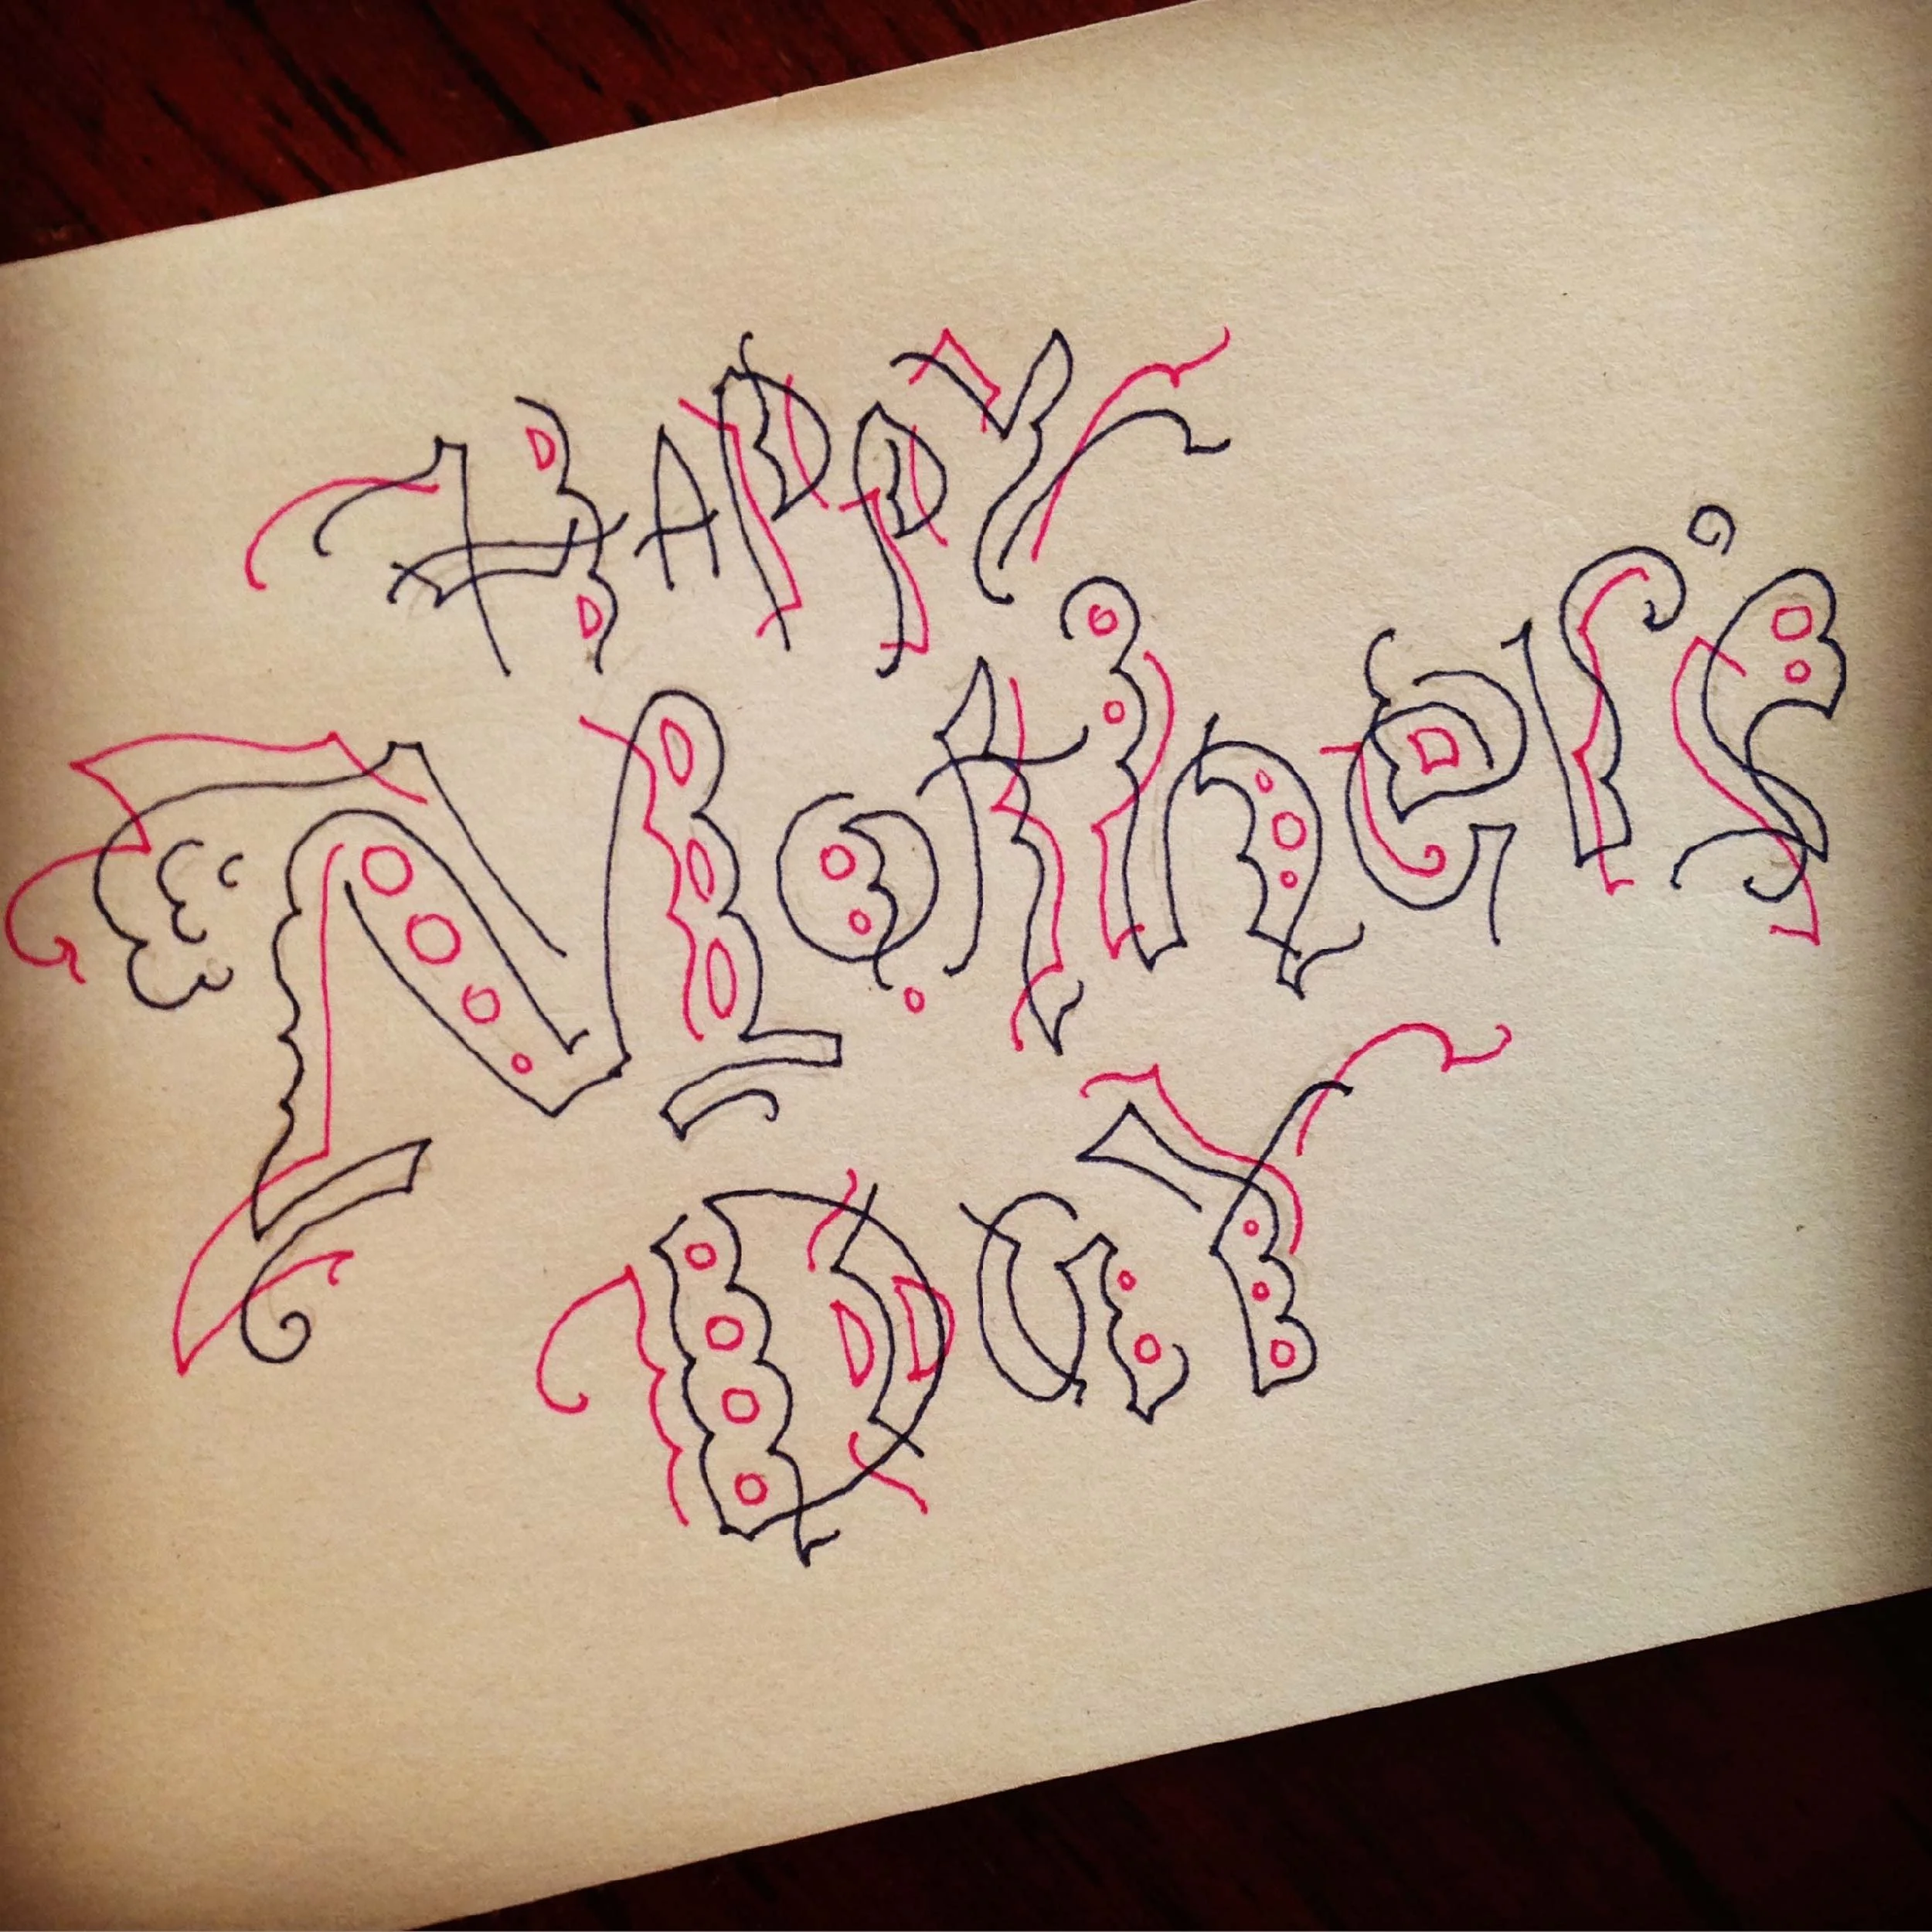 HAPPY
Mother's
DAY